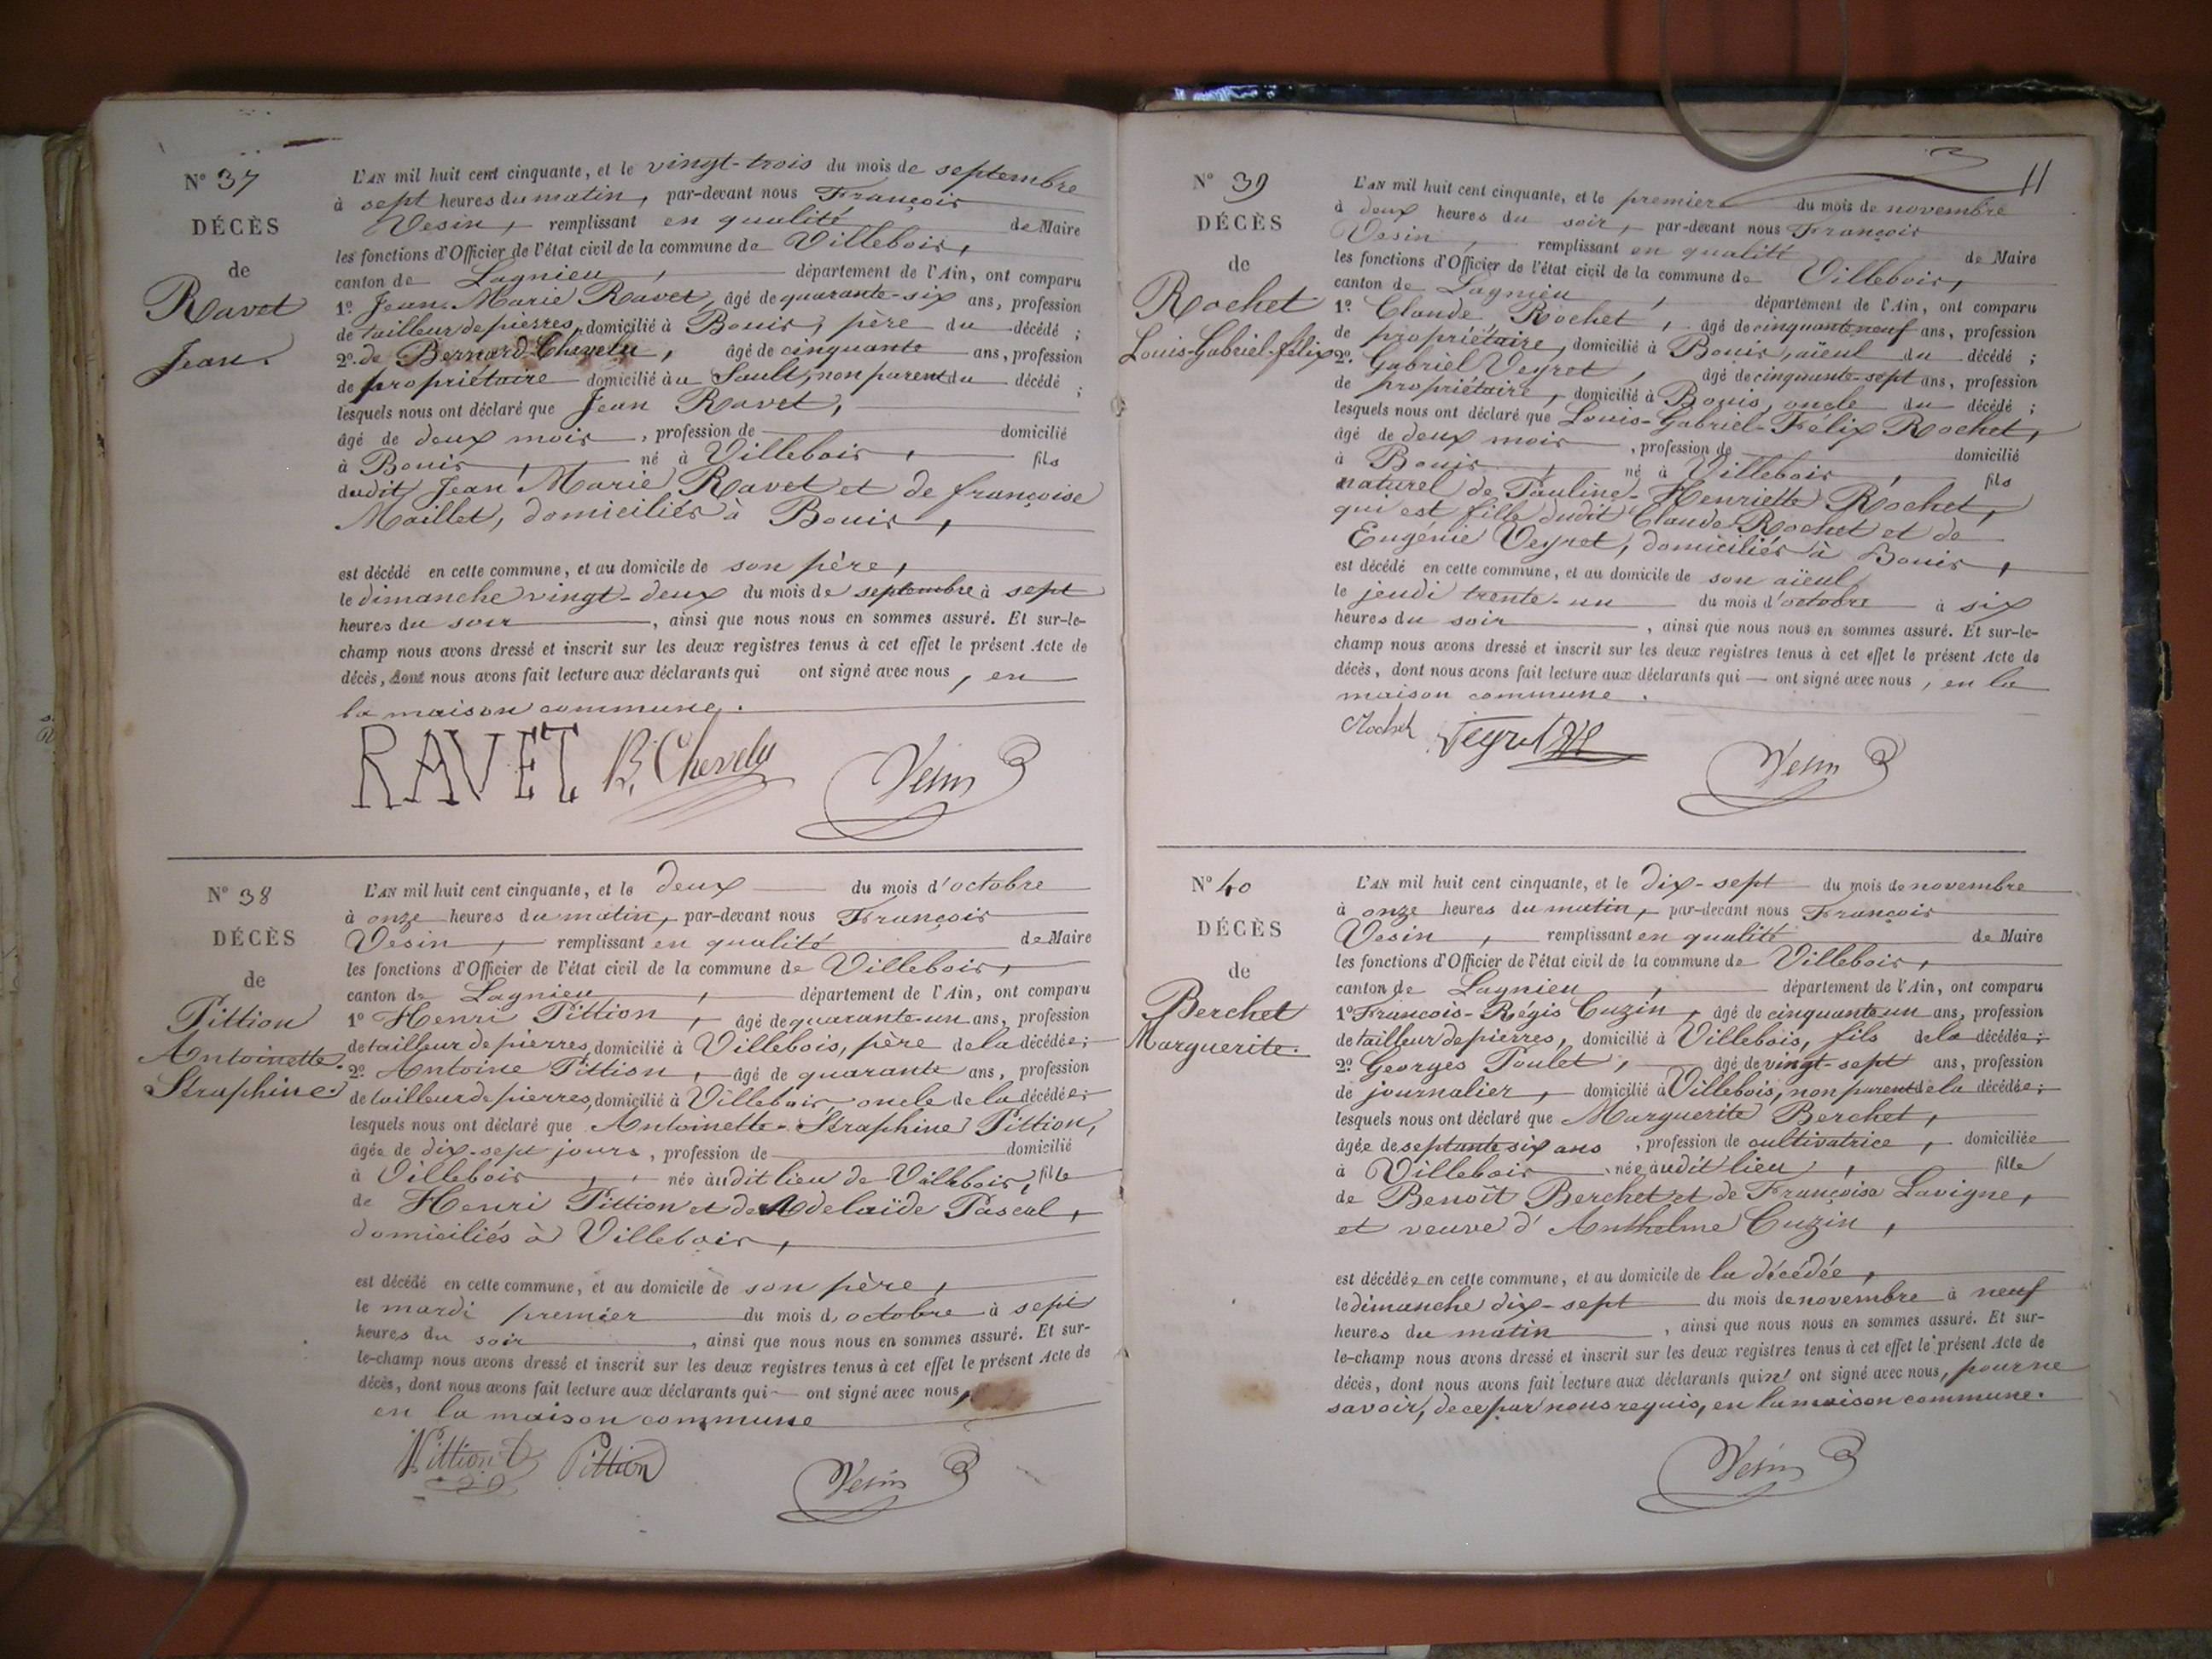 N° 37
DÉCÈS
de
Ravet
Jean.
L'AN mil huit cent cinquante, et le vingt-trois du mois de septembre
à sept heures du matin, par-devant nous François
Vesin, remplissant en qualité de Maire
les fonctions d'Officier de l'état civil de la commune de Villebois,
canton de Lagnieu, département de l'Ain, ont comparu
1° Jean-Marie Ravet, âgé de quarante-six ans, profession
de tailleur de pierres, domicilié à Bouis, père du décédé ;
2° de Bernard Chevelu, âgé de cinquante ans, profession
de propriétaire domicilié au Sault, non parent du décédé ;
lesquels nous ont déclaré que Jean Ravet,
âgé de deux mois, profession de domicilié
à Bouis, né à Villebois, fils
dudit Jean Marie Ravet et de françoise
Maillet, domiciliés à Bouis,
est décédé en cette commune, et au domicile de son père,
le dimanche vingt-deux du mois de septembre à sept
heures du soir, ainsi que nous nous en sommes assuré. Et sur-le-
champ nous avons dressé et inscrit sur les deux registres tenus à cet effet le présent Acte de
décès, dont nous avons fait lecture aux déclarants qui ont signé avec nous, en
la maison commune.
RAVET B. Chevelu Vesin
N° 38
DÉCÈS
de
Pittion
Antoinette-
Séraphine.
L'AN mil huit cent cinquante, et le deux du mois d'octobre
à onze heures du matin, par-devant nous François
Vesin, remplissant en qualité de Maire
les fonctions d'Officier de l'état civil de la commune de Villebois,
canton de Lagnieu, département de l'Ain, ont comparu
1° Henri Pittion, âgé de quarante-un ans, profession
de tailleur de pierres, domicilié à Villebois, père de la décédée ;
2° Antoine Pittion, âgé de quarante ans, profession
de tailleur de pierres, domicilié à Villebois oncle de la décédée ;
lesquels nous ont déclaré que Antoinette-Séraphine Pittion,
âgée de dix-sept jours, profession de domicilié
à Villebois, née audit lieu de Villebois, fille
de Henri Pittion et de Adelaïde Pascal,
domiciliés à Villebois,
est décédé en cette commune, et au domicile de son père,
le mardi premier du mois d'octobre à sept
heures du soir, ainsi que nous nous en sommes assuré. Et sur-
le-champ nous avons dressé et inscrit sur les deux registres tenus à cet effet le présent Acte de
décès, dont nous avons fait lecture aux déclarants qui ont signé avec nous,
en la maison commune
Pittion Pittion Vesin
11
N° 39
DÉCÈS
de
Rochet
Louis-Gabriel-félix
L'AN mil huit cent cinquante, et le premier du mois de novembre
à deux heures du soir, par-devant nous François
Vesin, remplissant en qualité de Maire
les fonctions d'Officier de l'état civil de la commune de Villebois,
canton de Lagnieu, département de l'Ain, ont comparu
1° Claude Rochet, âgé de cinquante neuf ans, profession
de propriétaire, domicilié à Bouis, aïeul du décédé ;
2° Gabriel Veyret, âgé de cinquante-sept ans, profession
de propriétaire, domicilié à Bouis, oncle du décédé ;
lesquels nous ont déclaré que Louis-Gabriel-Félix Rochet,
âgé de deux mois, profession de domicilié
à Bouis, né à Villebois, fils
naturel de Pauline-Henriette Rochet,
qui est fille dudit Claude Rochet et de
Eugénie Veyret, domiciliés à Bouis,
est décédé en cette commune, et au domicile de son aïeul,
le jeudi trente-un du mois d'octobre à six
heures du soir, ainsi que nous nous en sommes assuré. Et sur-le-
champ nous avons dressé et inscrit sur les deux registres tenus à cet effet le présent Acte de
décès, dont nous avons fait lecture aux déclarants qui ont signé avec nous, en la
maison commune.
Rochet Veyret Vesin
N° 40
DÉCÈS
de
Berchet
Marguerite.
L'AN mil huit cent cinquante, et le dix-sept du mois de novembre
à onze heures du matin, par-devant nous François
Vesin, remplissant en qualité de Maire
les fonctions d'Officier de l'état civil de la commune de Villebois,
canton de Lagnieu, département de l'Ain, ont comparu
1° Francois-Régis Cuzin, âgé de cinquante un ans, profession
de tailleur de pierres, domicilié à Villebois, fils de la décédée ;
2° Georges Poulet, âgé de vingt-sept ans, profession
de journalier, domicilié à Villebois, non parent de la décédée ;
lesquels nous ont déclaré que Marguerite Berchet,
âgée de septante six ans, profession de cultivatrice, domiciliée
à Villebois, née audit lieu, fille
de Benoît Berchet et de Françoise Lavigne,
et veuve d'Anthelme Cuzin,
est décédée en cette commune, et au domicile de la décédée,
le dimanche dix-sept du mois de novembre à neuf
heures du matin, ainsi que nous nous en sommes assuré. Et sur-
le-champ nous avons dressé et inscrit sur les deux registres tenus à cet effet le présent Acte de
décès, dont nous avons fait lecture aux déclarants qui n'ont signé avec nous, pour ne
savoir, de ce par nous requis, en la maison commune.
Vesin